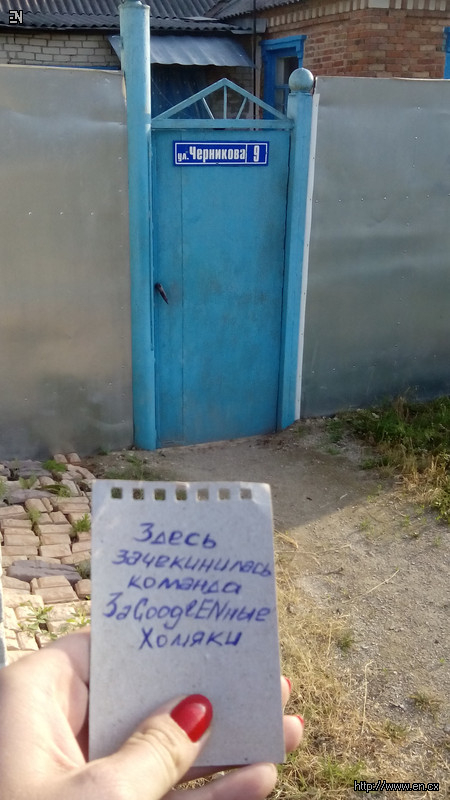 EN
ул. Черникова 9
Здесь
зачекинилась
команда
ЗаGooglENные
Хомяки
http://www.en.cx